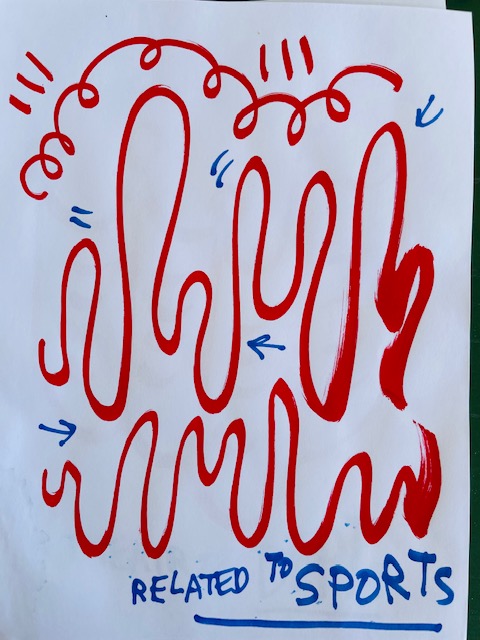 RELATED TO SPORTS